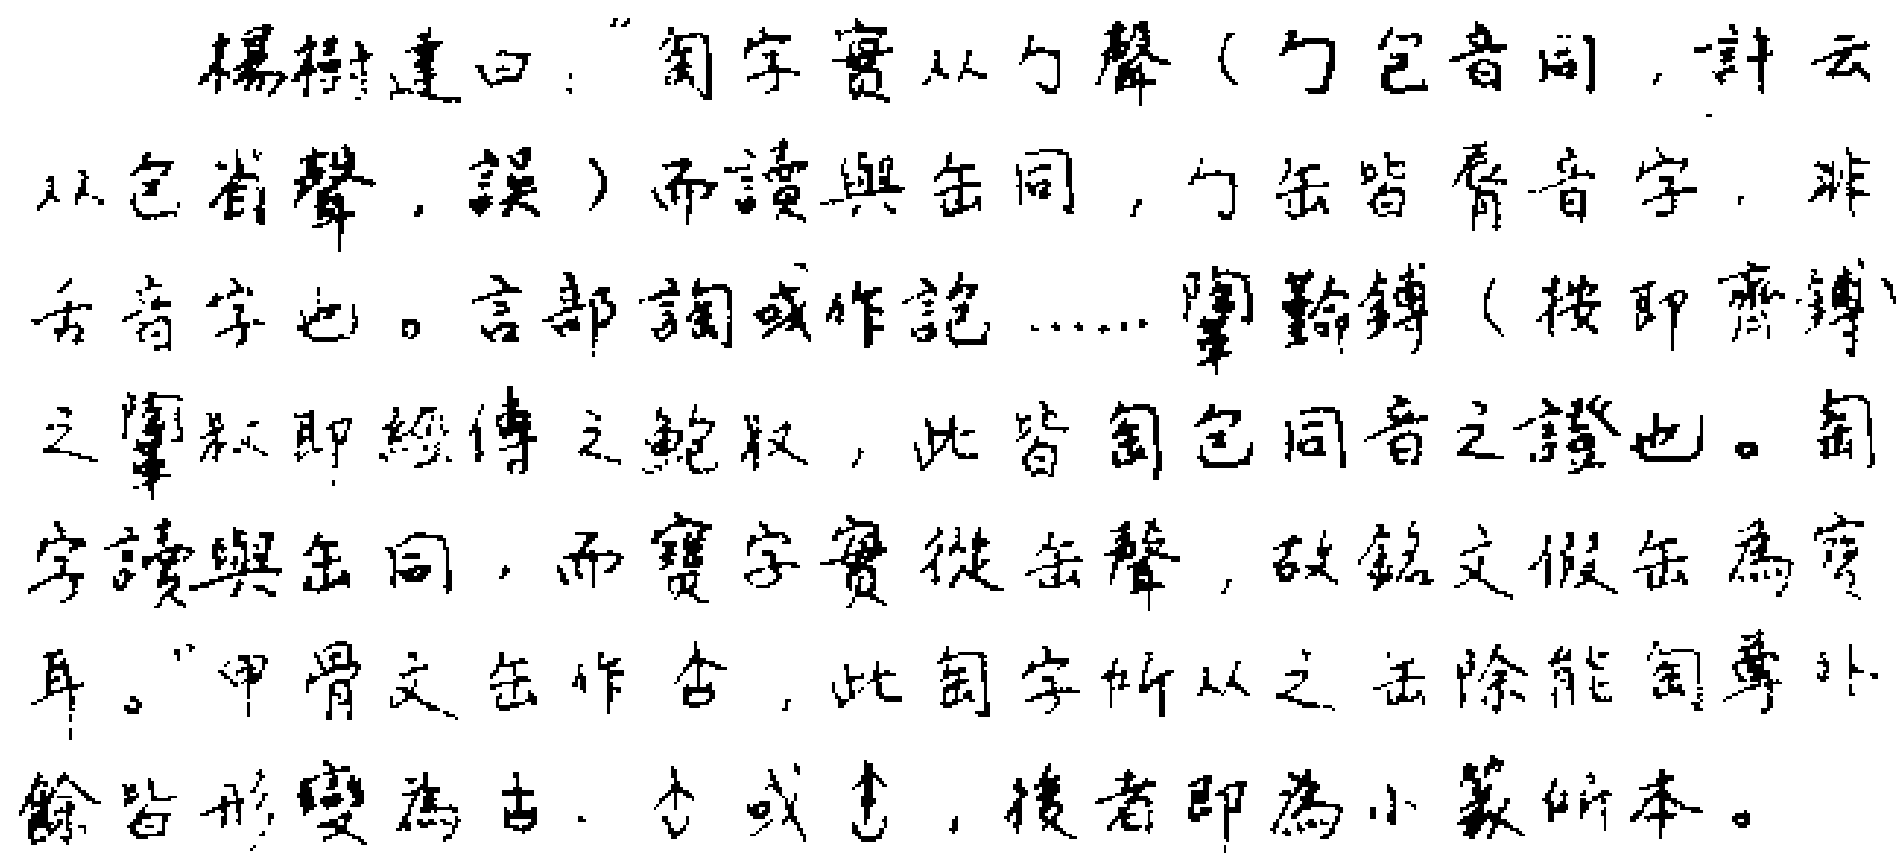 楊樹達曰："匋字實从勹聲（勹包音同，許云
从包省聲，誤）而讀與缶同，勹缶皆脣音字，非
舌音字也。言部詾或作詾……𦉢鎛（按即齊鎛）
之叔即經傳之鮑叔，此皆匋包同音之證也。匋
字讀與缶同，而寶字實從缶聲，故銘文假缶為寶
耳。"甲骨文缶作，此匋字所从之缶除能匋尊外
餘皆形變為古、或，後者即為小篆所本。